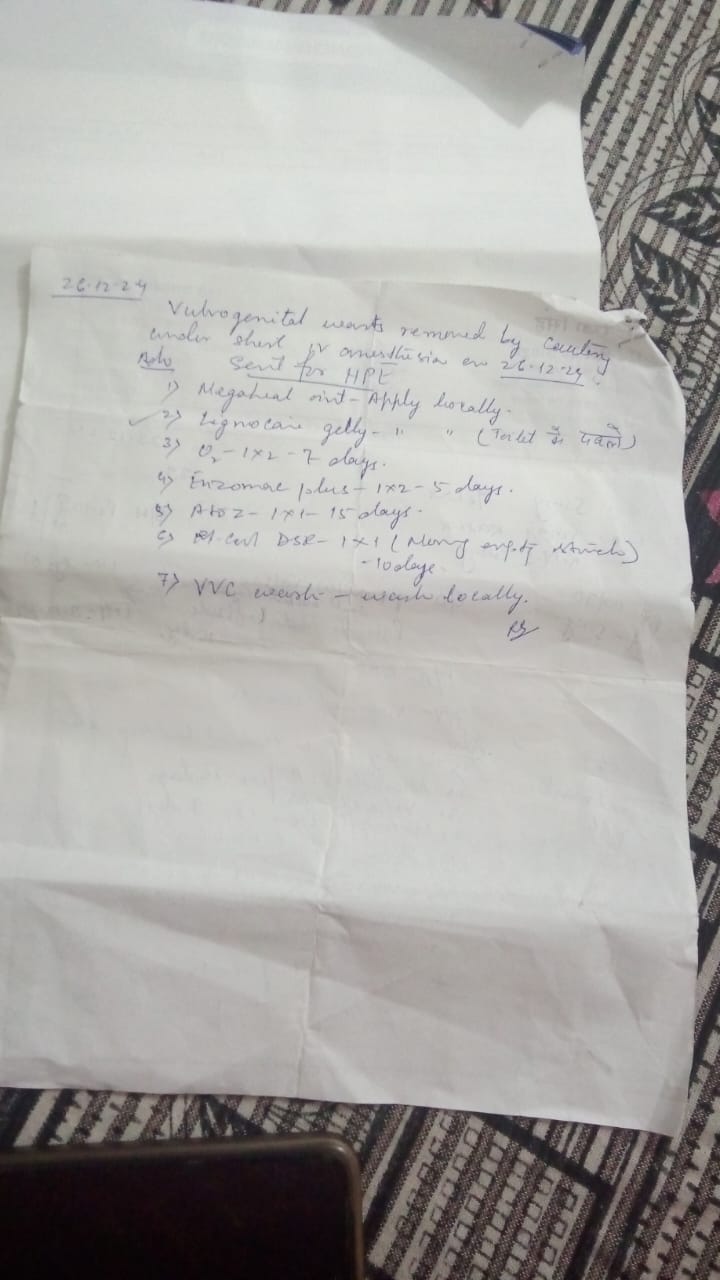 26.12.24
Vulvogenital warts removed by Cautery
under short IV anesthesia on 26.12.24.
Adv Sent for HPE
1) Megaheal oint - Apply locally.
2) Lignocain gelly - " " (Toilet से
3) O2 - 1x2 - 7 days.
4) Enzomac plus - 1x2 - 5 days.
5) A to Z - 1x1 - 15 days.
6) DSR - 1x1 (Morning empty stomach)
- 10 days
7) VVC wash - wash locally.